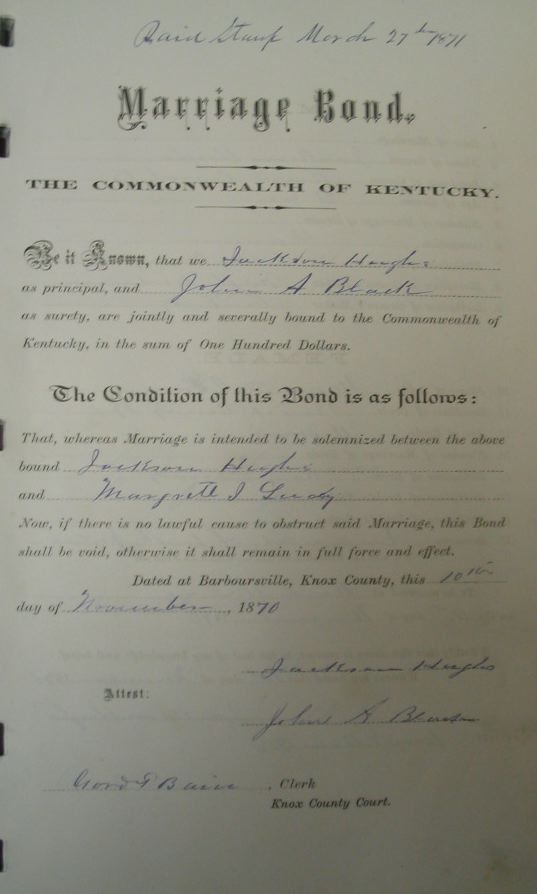 Paid Stamp March 27th 1871
Marriage Bond.
THE COMMONWEALTH OF KENTUCKY.
Be it Known, that we Jackson Hughs
as principal, and John A Black
as surety, are jointly and severally bound to the Commonwealth of
Kentucky, in the sum of One Hundred Dollars.
The Condition of this Bond is as follows:
That, whereas Marriage is intended to be solemnized between the above
bound Jackson Hughs
and Margrett J
Now, if there is no lawful cause to obstruct said Marriage, this Bond
shall be void, otherwise it shall remain in full force and effect.
Dated at Barboursville, Knox County, this 10th
day of November, 1870
Jackson Hughs
Attest:
John A
, Clerk
Knox County Court.